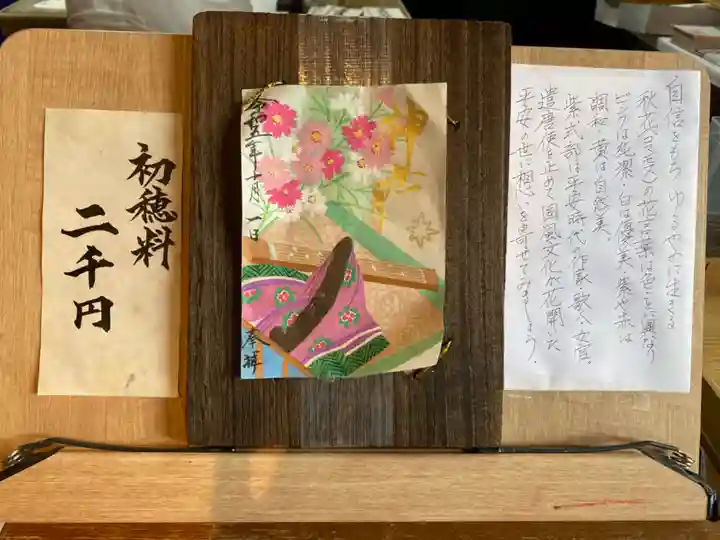 自信をもち ゆるやかに生きる
秋花(コスモス)の花言葉は色ごとに異なり
ピンクは純潔・白は優美・紫や赤は
調和・黄は自然美。
紫式部は平安時代の作家・歌人・女官。
遣唐使を止めて国風文化が花開いた
平安の世に想いを寄せてみましょう。
令和五年十月一日
奉拝
初穂料
二千円